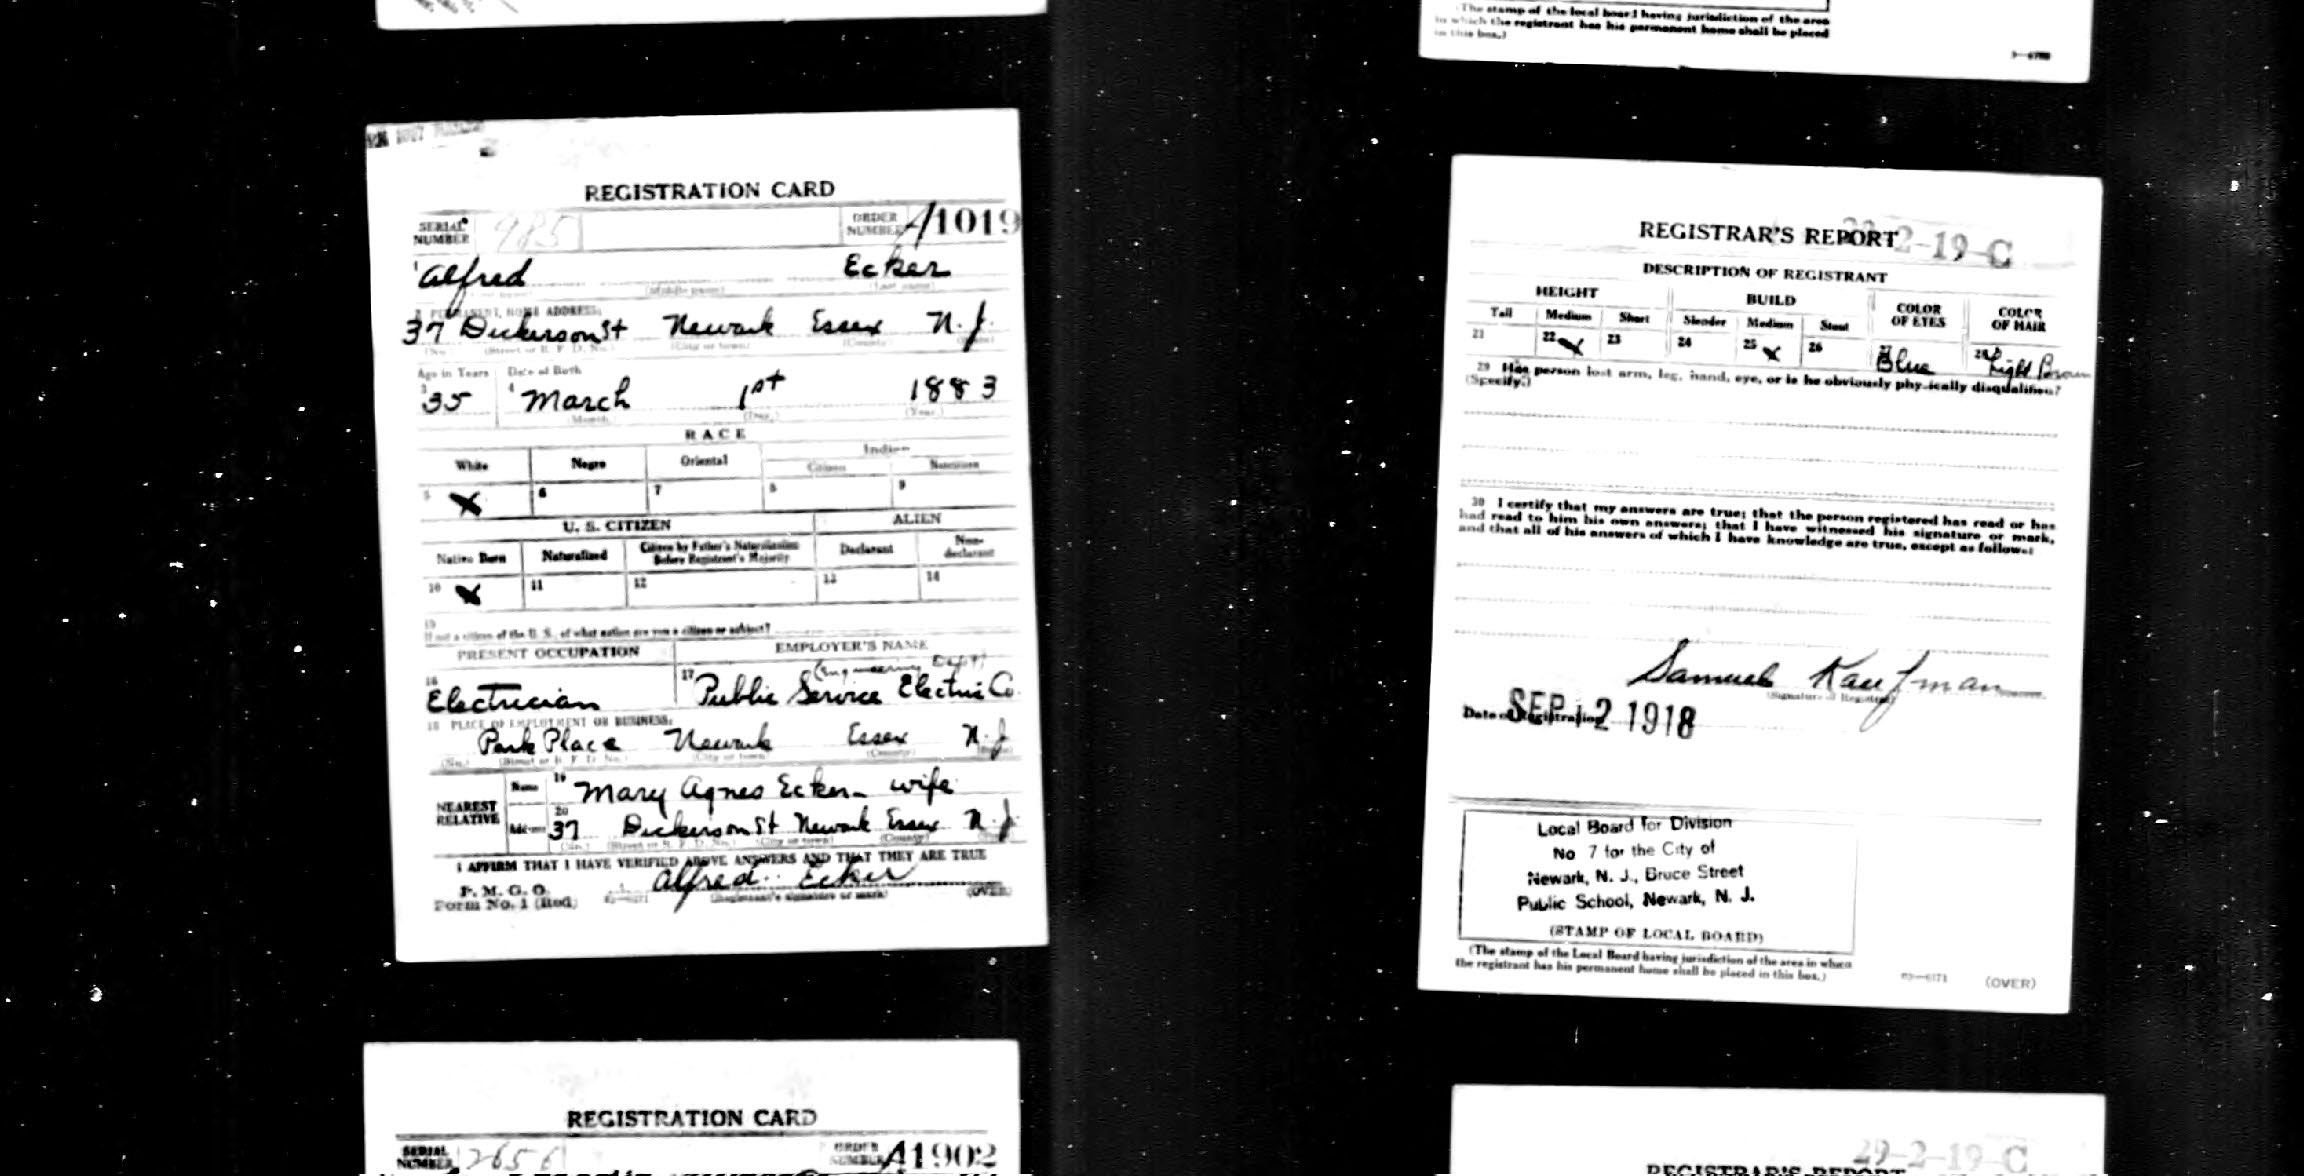 The stamp of the local board having jurisdiction of the area
in which the registrant has his permanent home shall be placed
in this box.)
REGISTRATION CARD
SERIAL NUMBER 985 ORDER NUMBER A1019
1 Alfred Ecker
(Middle name) (Last name)
2 PERMANENT HOME ADDRESS:
37 Dickerson St Newark Essex N.J.
(No.) (Street or R. F. D. No.) (City or town) (County) (State)
Age in Years Date of Birth
3 35 4 March 1st 1883
(Month.) (Day.) (Year.)
RACE
White Negro Oriental Indian
Citizen Noncitizen
5 X 6 7 8 9
U. S. CITIZEN ALIEN
Native Born Naturalized Citizen by Father's Naturalization Before Registrant's Majority Declarant Non-declarant
10 X 11 12 13 14
15
If not a citizen of the U. S., of what nation are you a citizen or subject?
PRESENT OCCUPATION EMPLOYER'S NAME
(Engineering Dept)
16 Electrician 17 Public Service Electric Co.
18 PLACE OF EMPLOYMENT OR BUSINESS:
Park Place Newark Essex N.J
(No.) (Street or R. F. D. No.) (City or town) (County) (State)
NEAREST RELATIVE Name 19 Mary Agnes Ecker - wife
Address 20 37 Dickerson St Newark Essex N.J.
(No.) (Street or R. F. D. No.) (City or town) (County) (State)
I AFFIRM THAT I HAVE VERIFIED ABOVE ANSWERS AND THAT THEY ARE TRUE
P. M. G. O.
Form No. 1 (Red) Alfred Ecker
(Registrant's signature or mark) (OVER)
REGISTRATION CARD
SERIAL NUMBER 2656 ORDER NUMBER A1902
REGISTRAR'S REPORT 2-19-C
DESCRIPTION OF REGISTRANT
HEIGHT BUILD COLOR OF EYES COLOR OF HAIR
Tall Medium Short Slender Medium Stout
21 22 X 23 24 25 X 26 27 Blue 28 Light Brown
29 Has person lost arm, leg, hand, eye, or is he obviously physically disqualified?
(Specify.)
30 I certify that my answers are true; that the person registered has read or has
had read to him his own answers; that I have witnessed his signature or mark,
and that all of his answers of which I have knowledge are true, except as follows:
Samuel Kaufman
(Signature of Registrar)
Date of Registration SEP 12 1918
Local Board for Division
No 7 for the City of
Newark, N. J., Bruce Street
Public School, Newark, N. J.
(STAMP OF LOCAL BOARD)
(The stamp of the Local Board having jurisdiction of the area in which
the registrant has his permanent home shall be placed in this box.)
03-6171 (OVER)
29-2-19-C
REGISTRAR'S REPORT